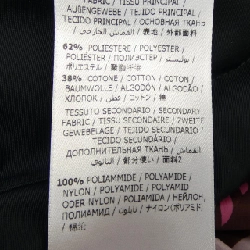 FABRIC / TISSU PRINCIPAL /
AUẞENGEWEBE / TEJIDO PRINCIPAL /
TECIDO PRINCIPAL / ОСНОВНАЯ ТКАНЬ
/ القماش الخارجي / 表地 / 外部面料
62% POLIESTERE / POLYESTER /
POLYESTER / ПОЛИЭСТЕР /
ポリエステル / 聚酯纤维
38% COTONE / COTTON / COTON /
BAUMWOLLE / ALGODÓN / ALGODÃO
/ ХЛОПОК / قطن / コットン / 棉
TESSUTO SECONDARIO / SECONDARY
FABRIC / TISSU SECONDAIRE / ZWEITE
GEWEBELAGE / TEJIDO SECUNDARIO
/ TECIDO SECUNDÁRIO /
ДОПОЛНИТЕЛЬНАЯ ТКАНЬ /
/ 部分使い / 面料2
100% POLIAMMIDE / POLYAMIDE /
NYLON / POLYAMIDE / POLYAMID
ODER NYLON / POLIAMIDA / НЕЙЛОН,
ПОЛИАМИД / نايلون / ナイロン(ポリアミド)
/ 锦纶